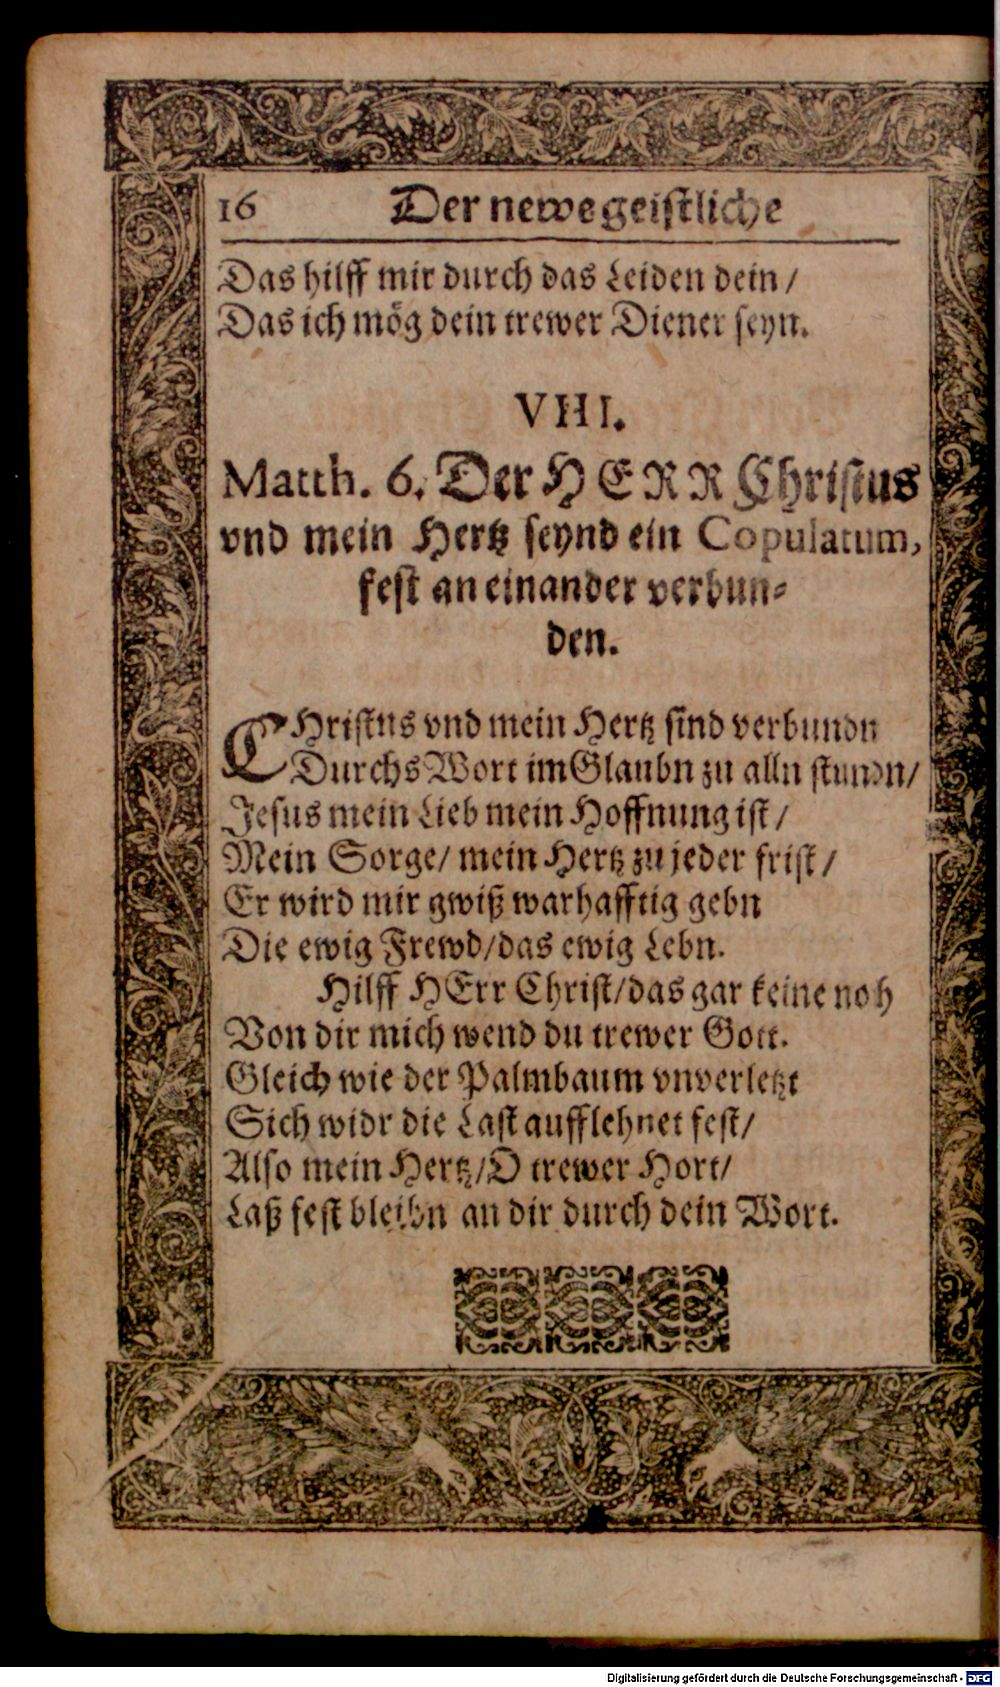 16 Der newe geistliche
Das hilff mir durch das Leiden dein /
Das ich mög dein trewer Diener seyn.
VIII.
Matth. 6. Der HERR Christus
vnd mein Hertz seynd ein Copulatum,
fest an einander verbun-
den.
CHristus vnd mein Hertz sind verbundn
Durchs Wort im Glaubn zu alln stundn /
Jesus mein Lieb mein Hoffnung ist /
Mein Sorge / mein Hertz zu jeder frist /
Er wird mir gwiß warhafftig gebn
Die ewig Frewd / das ewig Lebn.
Hilff HErr Christ / das gar keine noh
Von dir mich wend du trewer Gott.
Gleich wie der Palmbaum vnverletzt
Sich widr die Last aufflehnet fest /
Also mein Hertz / O trewer Hort /
Laß fest bleibn an dir durch dein Wort.
Digitalisierung gefördert durch die Deutsche Forschungsgemeinschaft - DFG